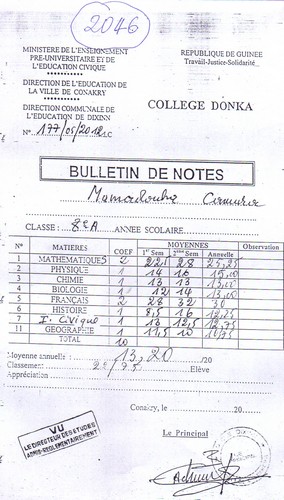 2046
MINISTERE DE L'ENSEIGNEMENT
PRE-UNIVERSITAIRE ET DE
L'EDUCATION CIVIQUE
REPUBLIQUE DE GUINEE
Travail-Justice-Solidarité
DIRECTION DE L'EDUCATION DE
LA VILLE DE CONAKRY
COLLEGE DONKA
DIRECTION COMMUNALE DE
L'EDUCATION DE DIXINN
BULLETIN DE NOTES
CLASSE : 8e A ANNEE SCOLAIRE
N° MATIERES COEF MOYENNES Observation
1er Sem 2ème Sem Annuelle
1 MATHEMATIQUES 2 22,5 28 25,25
2 PHYSIQUE 1 14 16 15,00
3 CHIMIE 1 13 13 13,00
4 BIOLOGIE 1 12 14 13,00
5 FRANÇAIS 2 28 32 30
6 HISTOIRE 1 8,5 16 12,25
7 I. Civique 1 13 12,5 12,75
11 GEOGRAPHIE 1 11,5 10
TOTAL 10
Moyenne annuelle : 13,20 /20
Classement 2e/75 Elève
Appréciation
Conakry, le 20
VU
LE DIRECTEUR DES ETUDES
Le Principal